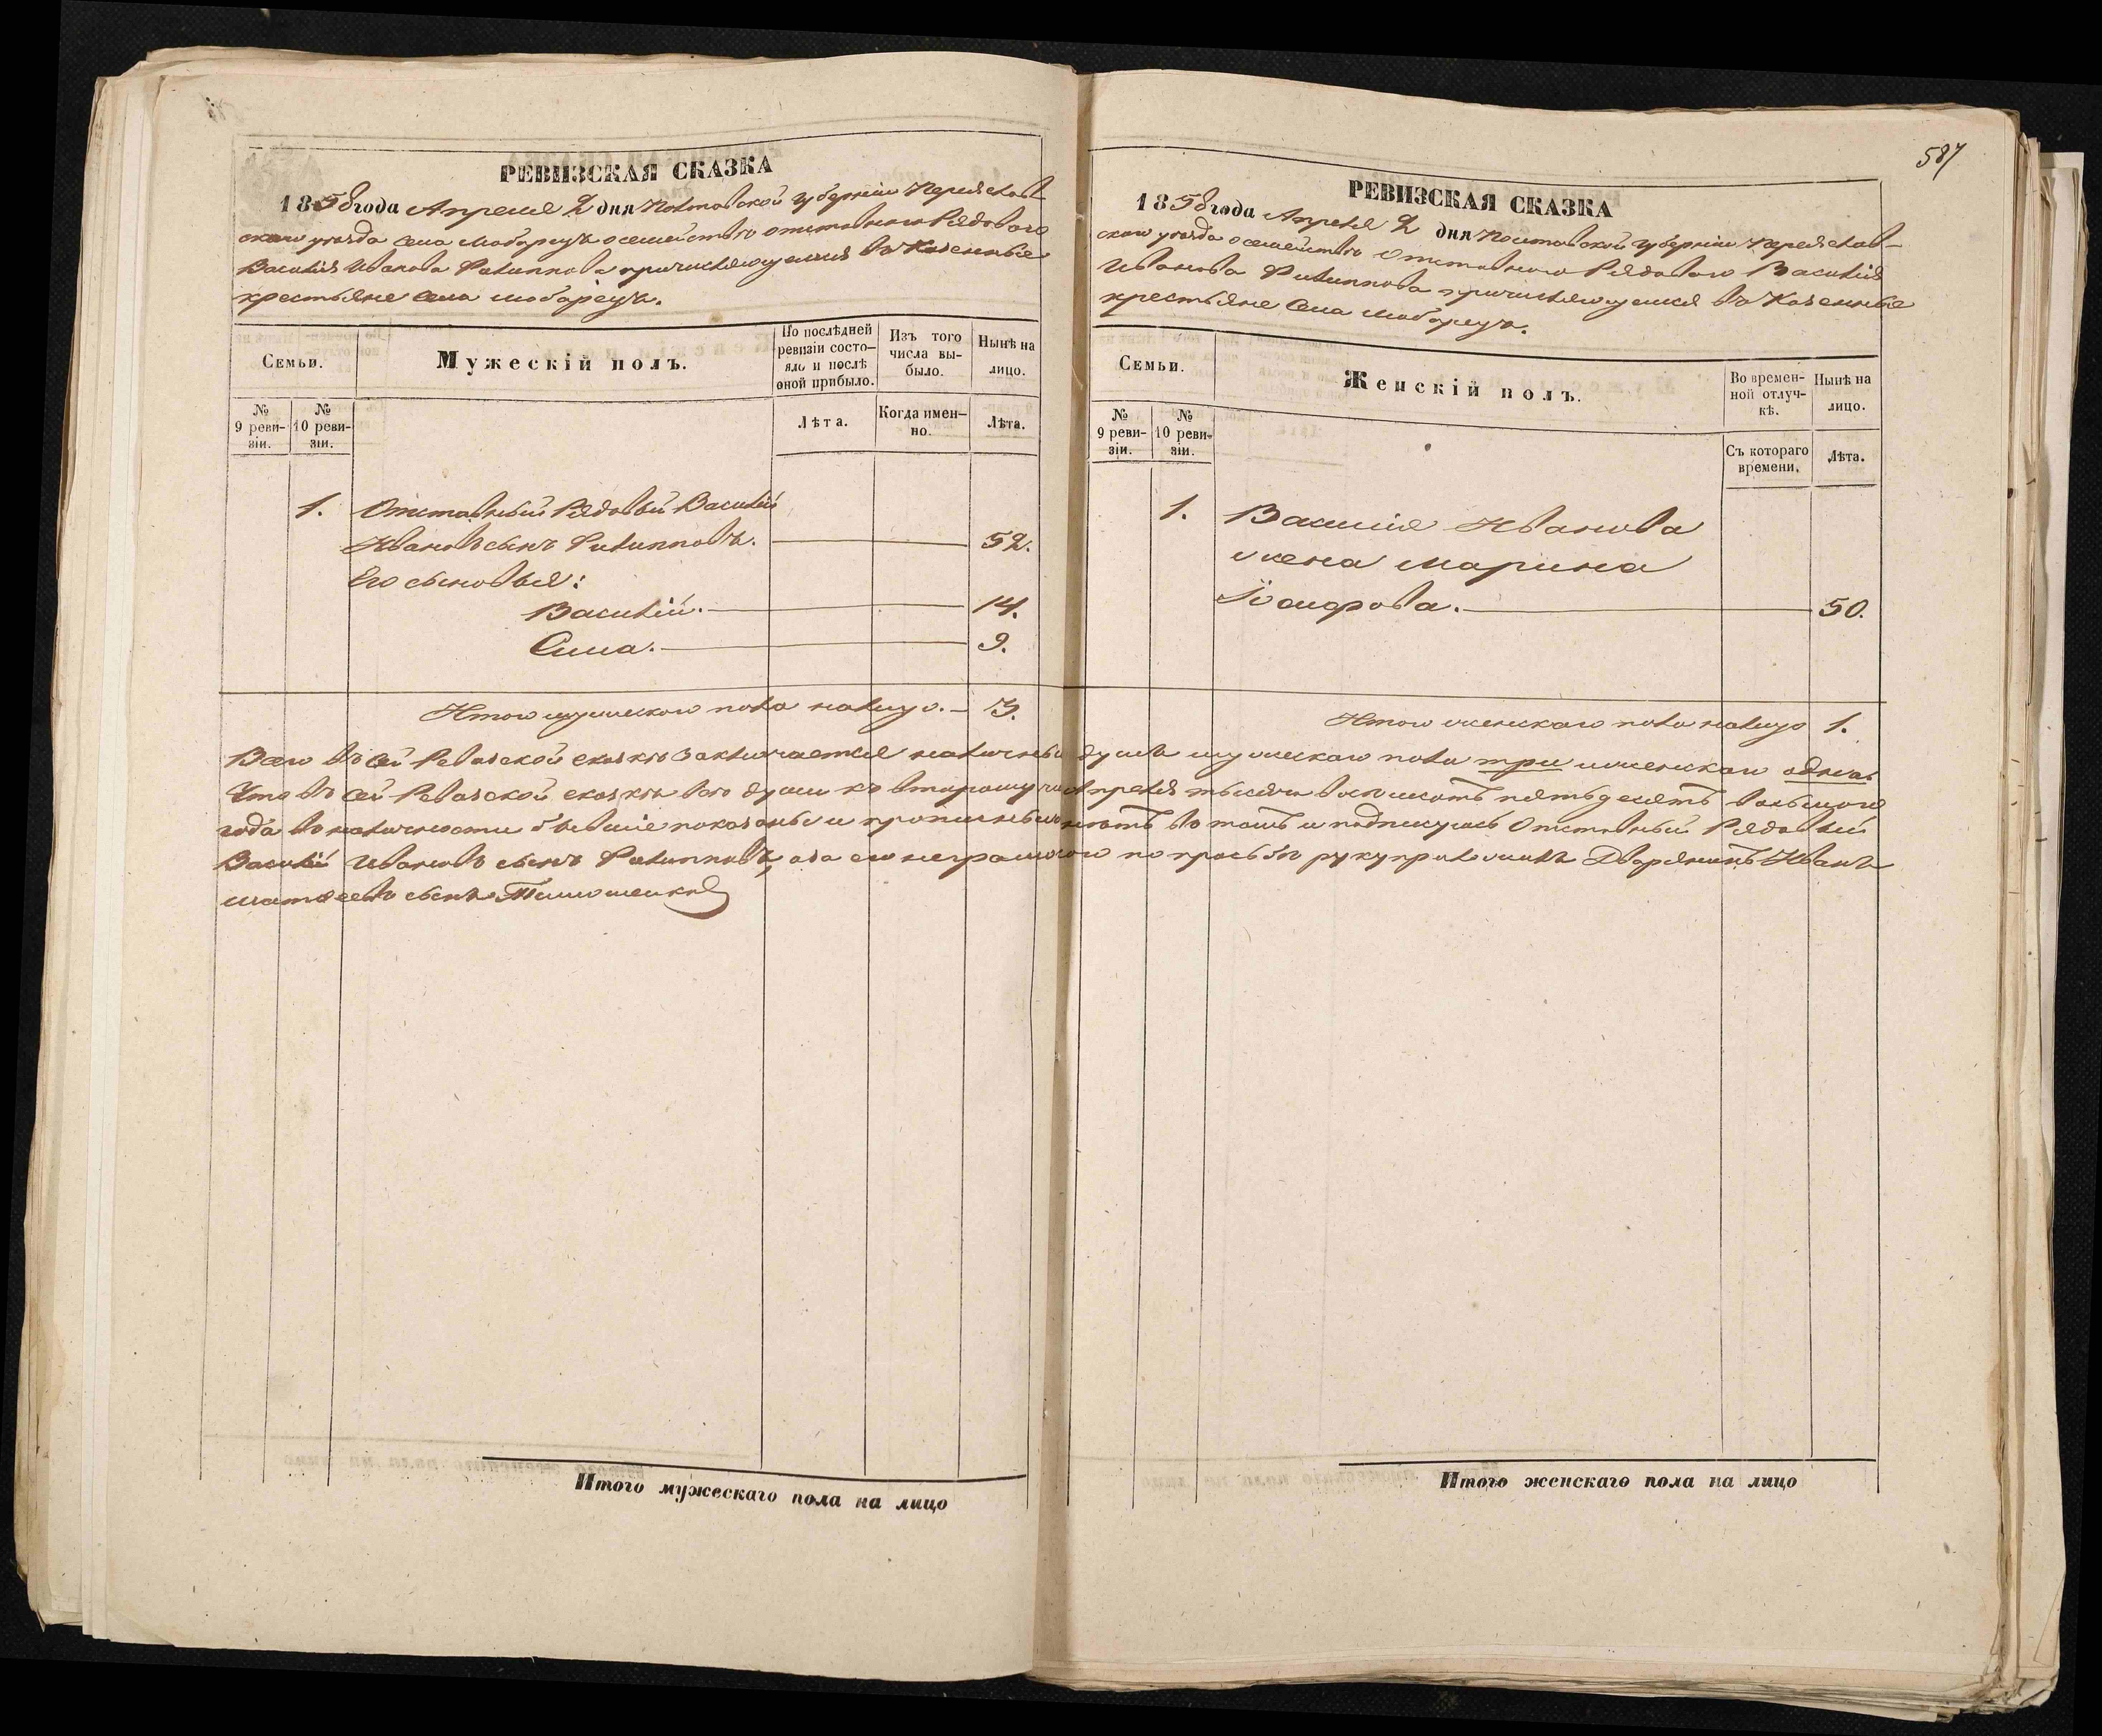 587
РЕВИЗСКАЯ СКАЗКА
1858 года Апреля 2 дня Полтавской губернии Переяслав-
скаго уезда села о семействе отставнаго Рядоваго
Василия Иванова Филиппова причисляющемся въ Казенные
крестьяне села
Семьи.
Мужескій полъ.
По послѣдней ревизіи состо-
яло и послѣ оной прибыло.
Изъ того числа вы-
было.
Нынѣ на лицо.
№ 9 реви-
зіи.
№ 10 реви-
зіи.
Лѣта.
Когда имен-
но.
Лѣта.
1. Отставный Рядовый Василій
Ивановъ сынъ Филипповъ. 52.
Его сыновья:
Василій. 14.
Сила. 9.
Итого мужескаго пола налицо. 3.
РЕВИЗСКАЯ СКАЗКА
1858 года Апреля 2 дня Полтавской губерніи Переяслав-
скаго уезда о семействе Отставного Рядоваго Василія
Иванова Филиппова причисляющемся въ Казенные
крестьяне села
Семьи.
Женскій полъ.
Во времен-
ной отлуч-
кѣ.
Нынѣ на лицо.
№ 9 реви-
зіи.
№ 10 реви-
зіи.
Съ котораго времени.
Лѣта.
1. Василія Иванова
жена Марина
Іосифова. 50.
Итого женскаго пола налицо 1.
Всего въ сей Ревизской сказкѣ заключается наличныхъ душъ мужескаго пола три женскаго одна
Что въ сей Ревизской сказкѣ всѣ души къ второму Апреля тысяча восемсотъ пятьдесятъ восьмого
года въ наличности бывшіе показаны и прописныхъ нетъ въ томъ и подписуюсь Отставный Рядовый
Василій Ивановъ сынъ Филипповъ, а за его неграмотного по просьбѣ руку приложилъ Дворянинъ Иванъ
сынъ Тимошенко
Итого мужескаго пола на лицо
Итого женскаго пола на лицо